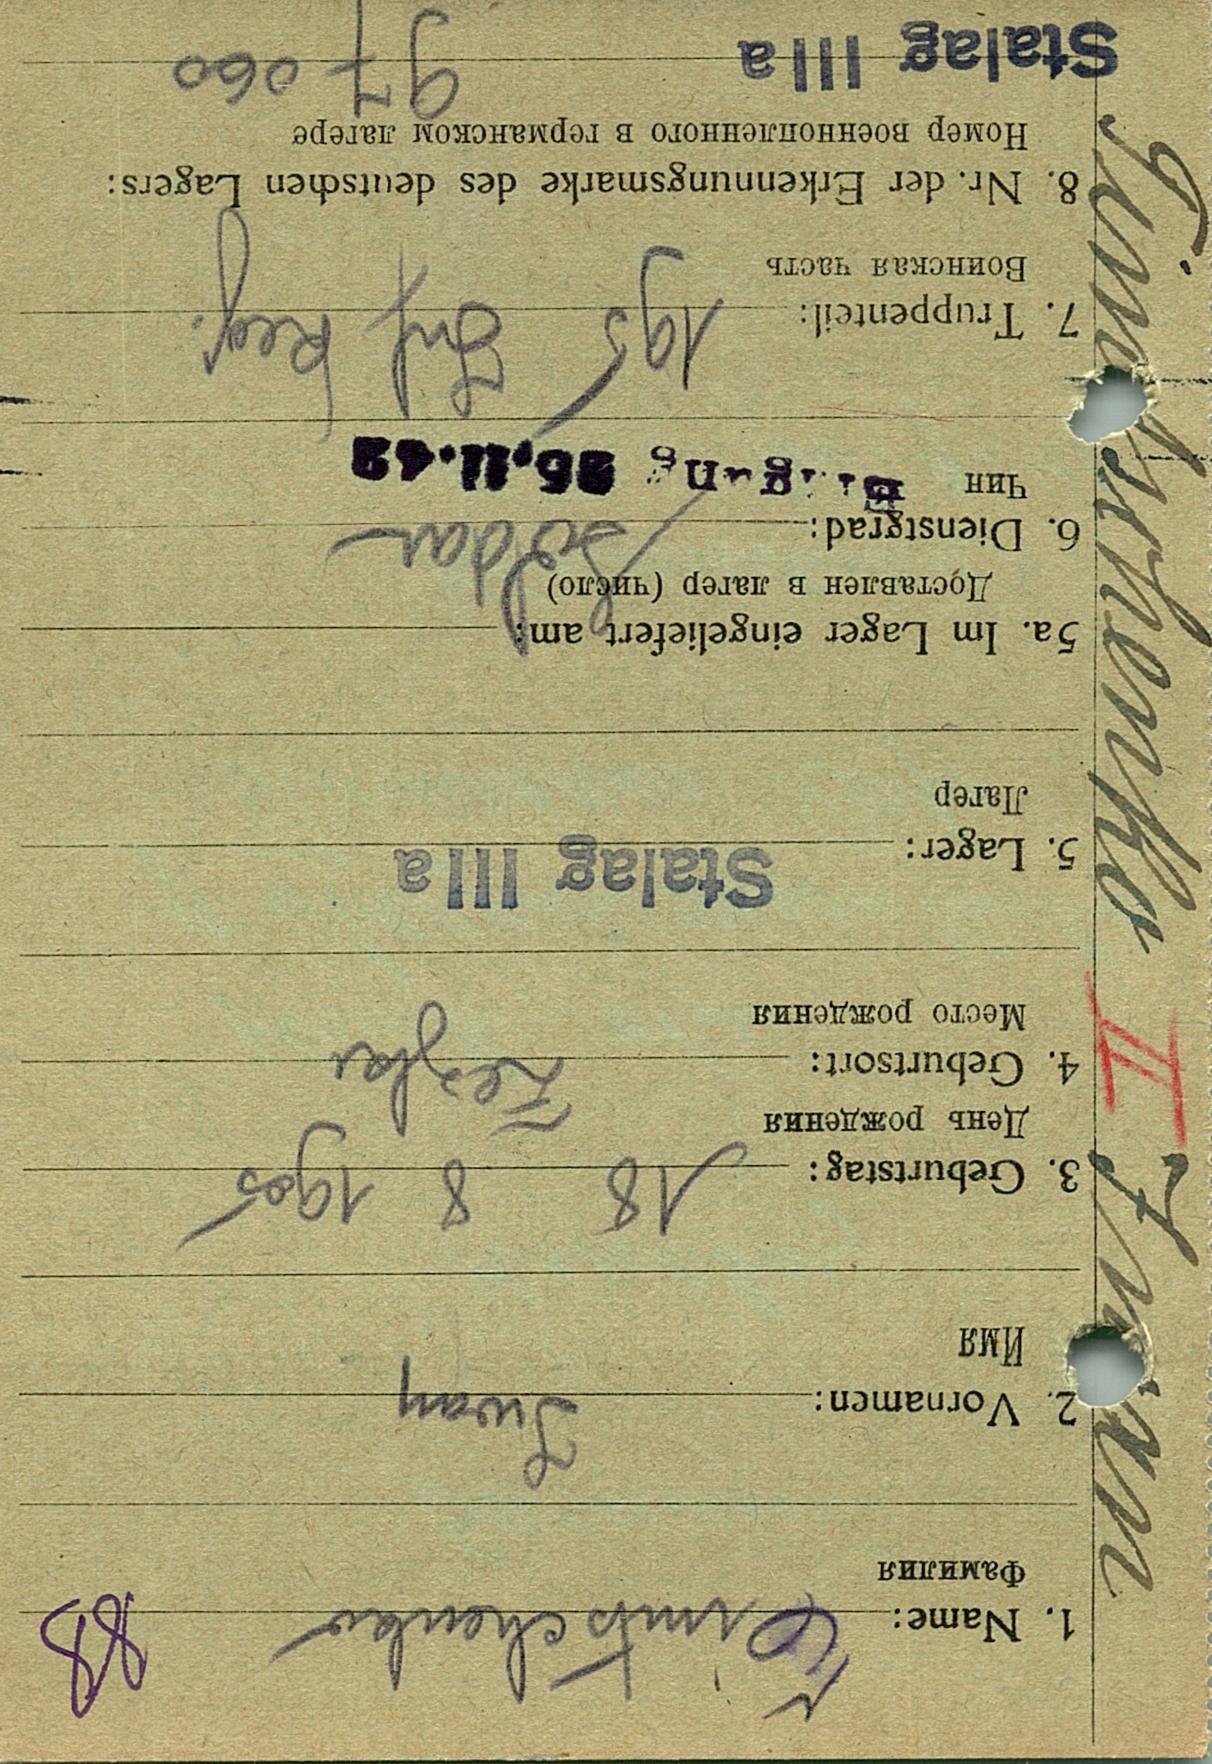 88
1. Name: Gimtschenko
Фамилия
2. Vornamen: Iwan
Имя
3. Geburtstag: 18 8 1905
День рождения
4. Geburtsort:
Место рождения
5. Lager: Stalag IIIa
Лагер
5a. Im Lager eingeliefert am:
Доставлен в лагер (число)
6. Dienstgrad: Soldat
Чин Eingang 25.11.42
7. Truppenteil: 195 Inf Reg.
Воинская часть
8. Nr. der Erkennungsmarke des deutschen Lagers:
Номер военнопленного в германском лагере
Stalag IIIa 97 060
Gimtschenko II Iwan